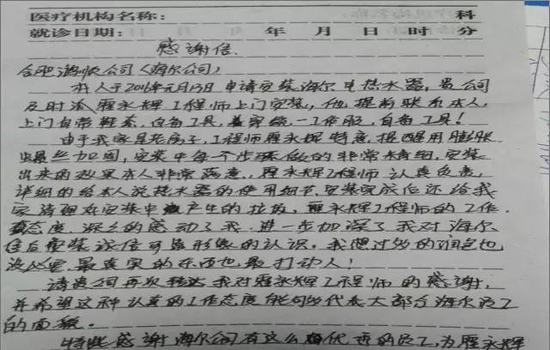 医疗机构名称: 科
就诊日期: 年 月 日 时 分
感谢信
合肥海顺公司(海尔公司)
本人于2016元月13日申请安装海尔电热水器,贵公司
及时派翟永辉工程师上门安装,他提前联系本人,
上门自带鞋套,自备工具,着穿统一工作服,自备工具!
由于我家是老房子,工程师翟永辉特意提醒用膨胀
螺丝加固,安装中每个步骤做的非常精细,安装
出来的效果本人非常满意,翟永辉工程师认真负责,
详细的给本人说热水器的使用细节,安装完成后还给我
家清理处安装中产生的垃圾,翟永辉工程师的工作
态度,深深的感动了我,进一步加深了我对海尔
售后安装诚信可靠形象的认识。我想过多的润色也
没必要,最真实的东西也最打动人!
请贵公司再次转达我对翟永辉工程师的感谢,
并希望这种认真的工作态度能够代表大部分海尔员工
的面貌。
特此感谢海尔公司有这么优秀的员工,为翟永辉